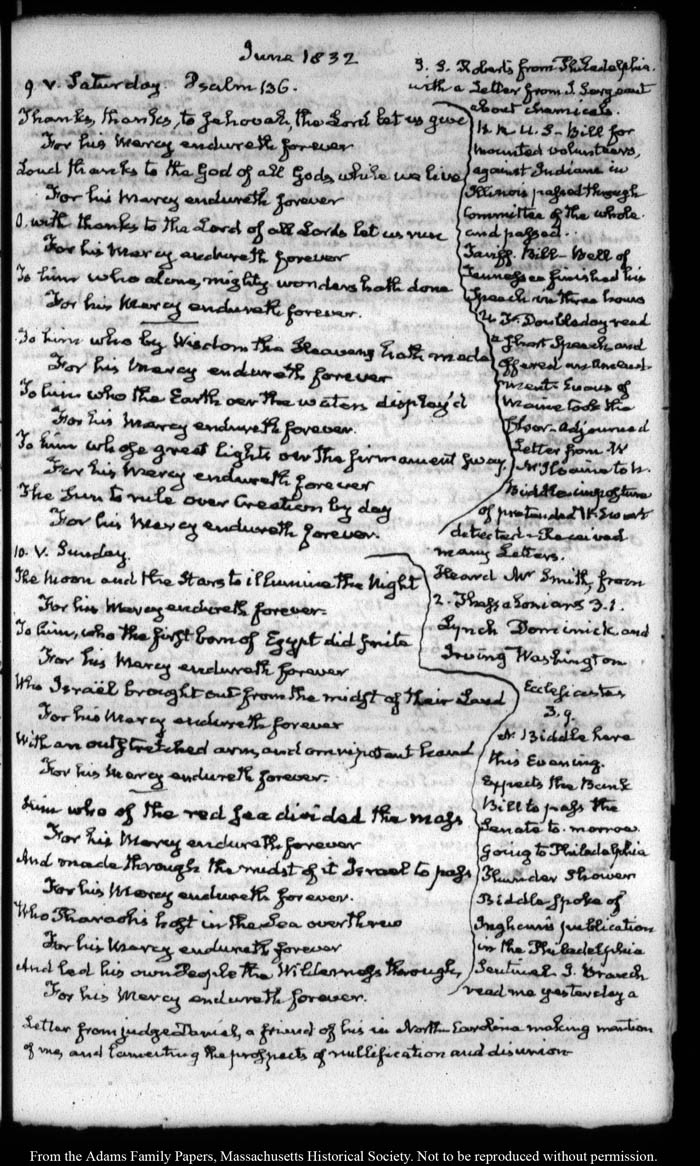 June 1832
9. V. Saturday. Psalm 136.
Thanks, thanks, to Jehovah, the Lord let us give
For his Mercy endureth forever
Loud thanks to the God of all Gods while we live
For his Mercy endureth forever
O, with thanks to the Lord of all Lords let us
For his Mercy endureth forever
To him who alone, mighty wonders hath done
For his Mercy endureth forever.
To him who by Wisdom the Heavens hath made
For his Mercy endureth forever
To him who the Earth over the waters display'd
For his Mercy endureth forever.
To him whose great lights over the firmament sway
For his Mercy endureth forever
The Sun to rule over Creation by day
For his Mercy endureth forever.
S. Roberts from Philadelphia.
with a Letter from J. Sergeant
about chemicals.
H. R. U. S- Bill for
mounted volunteers,
against Indians in
Illinois passed through
Committee of the whole.
and passed.
Tariff. Bill- Bell of
Tennessee finished his
Speech in three hours
U. F. Doubleday read
a short Speech and
offered an Amend-
ment- Evans of
Maine took the
floor- adjourned
Letter from W
to N.
Biddle- imposture
of pretended W. Stewart
detected- Received
many Letters.
10. V. Sunday.
The Moon and the Stars to illumine the Night
For his Mercy endureth forever.
To him, who the first born of Egypt did smite
For his Mercy endureth forever
Who Israël brought out from the midst of their Land
For his Mercy endureth forever
With an outstretched arm, and omnipotent hand
For his Mercy endureth forever.
Him who of the red sea divided the mass
For his Mercy endureth forever
And made through the midst of it Israel to pass
For his Mercy endureth forever.
Who Pharaoh's host in the Sea overthrew
For his Mercy endureth forever
And led his own People the Wilderness through,
For his Mercy endureth forever.
Heard Mr Smith, from
2. Thessalonians 3.1.
Lynch Dominick and
Irving Washington
Ecclesiastes
3.9.
N. Biddle here
this Evening.
Expects the Bank
Bill to pass the
Senate to-morrow
Going to Philadelphia
Thunder Shower
Biddle spoke of
Ingham's publication
in the Philadelphia
Sentinel. J. Branch
read me yesterday a
Letter from judge Daniel, a friend of his in North-Carolina making mention
of me, and lamenting the prospects of nullification and disunion
From the Adams Family Papers, Massachusetts Historical Society. Not to be reproduced without permission.